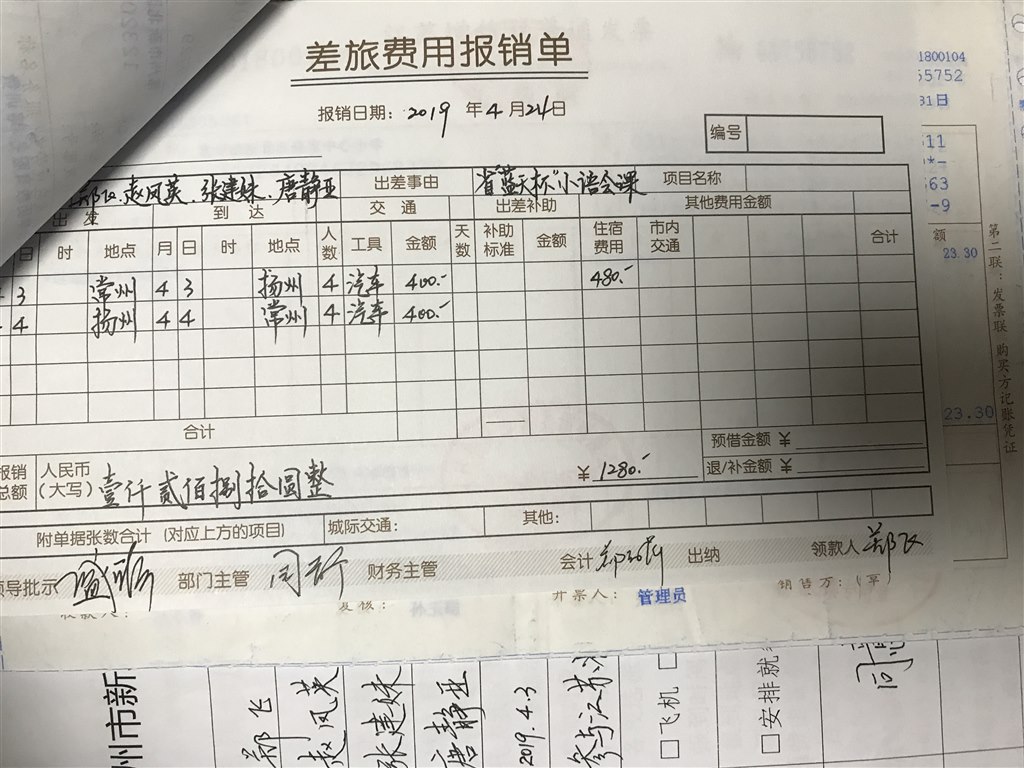 差旅费用报销单
1800104
55752
报销日期：2019年4月24日
31日
编号
11
*-
563
-9
郑飞、赵凤英、张建妹、唐静亚 出差事由 省"蓝天杯"小语会课 项目名称
出发 到达 交通 出差补助 其他费用金额
日 时 地点 月 日 时 地点 人数 工具 金额 天数 补助标准 金额 住宿费用 市内交通 合计
额
23.30
3 常州 4 3 扬州 4 汽车 400.- 480.-
4 扬州 4 4 常州 4 汽车 400.-
第二联：发票联 购买方记账凭证
23.30
合计
预借金额 ¥
报销总额 人民币（大写）壹仟贰佰捌拾圆整 ¥1280.- 退/补金额 ¥
附单据张数合计（对应上方的项目） 城际交通： 其他：
领导批示 部门主管 财务主管 会计 出纳 领款人 郑飞
收款人： 复核： 开票人： 管理员 销售方：（章）
州市新
郑飞
赵凤英
张建妹
唐静亚
2019.4.3
参与江苏
□飞机 □
□安排就
同意